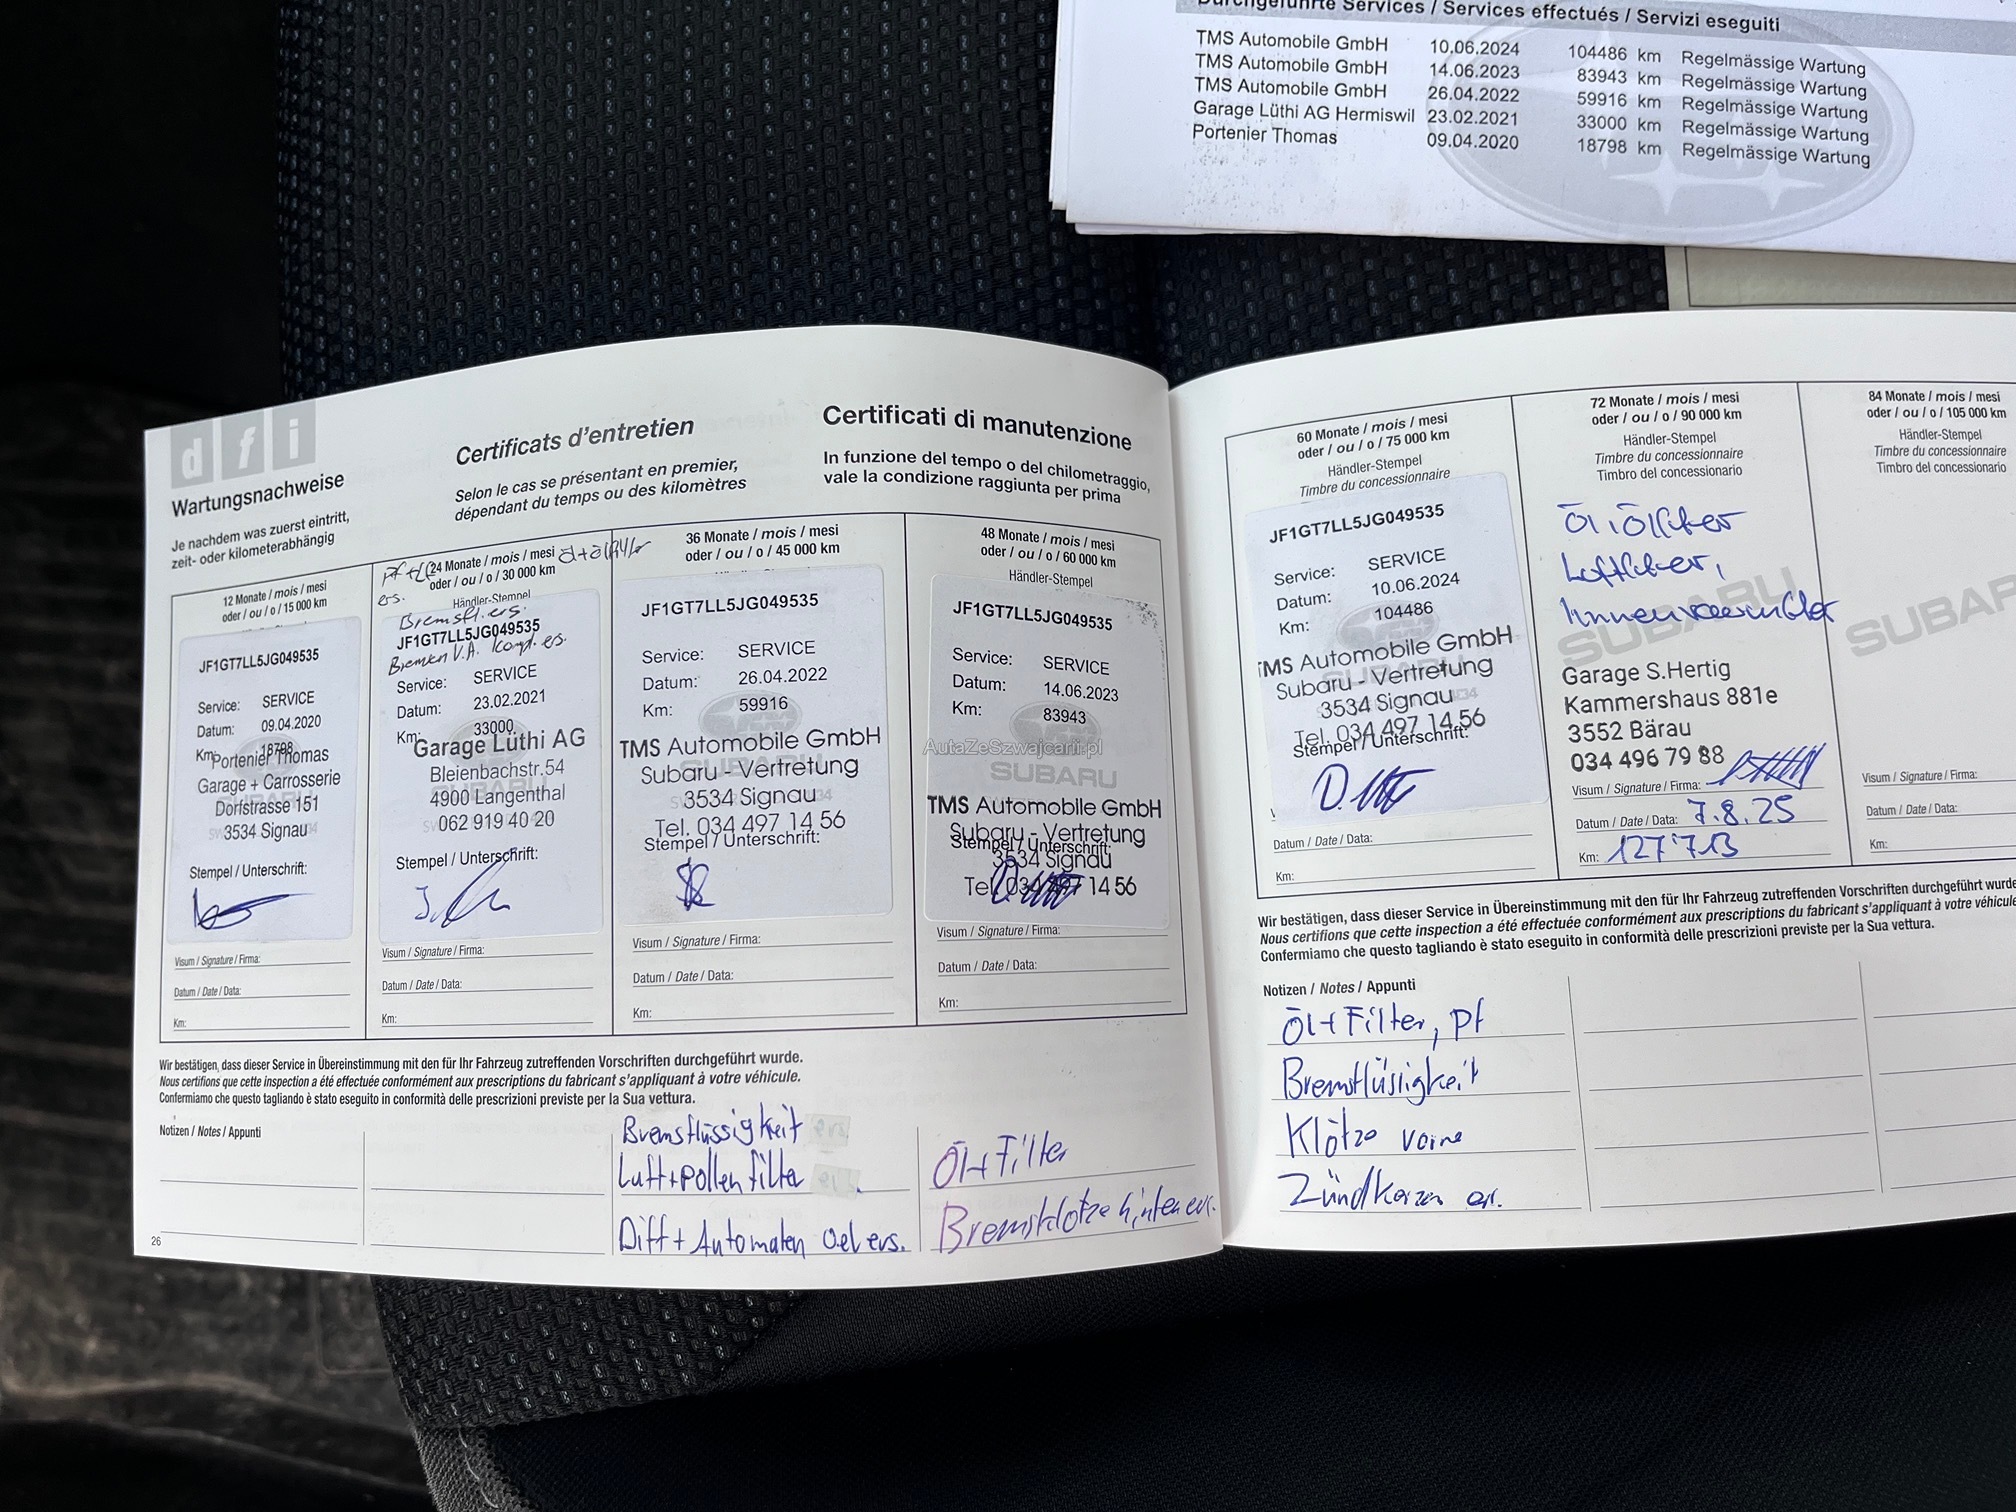 Durchgeführte Services / Services effectués / Servizi eseguiti
TMS Automobile GmbH 10.06.2024 104486 km Regelmässige Wartung
TMS Automobile GmbH 14.06.2023 83943 km Regelmässige Wartung
TMS Automobile GmbH 26.04.2022 59916 km Regelmässige Wartung
Garage Lüthi AG Hermiswil 23.02.2021 33000 km Regelmässige Wartung
Portenier Thomas 09.04.2020 18798 km Regelmässige Wartung
d f i
Wartungsnachweise
Je nachdem was zuerst eintritt,
zeit- oder kilometerabhängig
Certificats d'entretien
Selon le cas se présentant en premier,
dépendant du temps ou des kilomètres
Certificati di manutenzione
In funzione del tempo o del chilometraggio,
vale la condizione raggiunta per prima
12 Monate / mois / mesi
oder / ou / o / 15 000 km
JF1GT7LL5JG049535
Service: SERVICE
Datum: 09.04.2020
Km: 18798
Portenier Thomas
Garage + Carrosserie
Dorfstrasse 151
3534 Signau
Stempel / Unterschrift:
Visum / Signature / Firma:
Datum / Date / Data:
Km:
24 Monate / mois / mesi
oder / ou / o / 30 000 km
ers.
Händler-Stempel
Bremsfl. ers.
JF1GT7LL5JG049535
Bremsen V.A. kompl. ers.
Service: SERVICE
Datum: 23.02.2021
Km: 33000
Garage Lüthi AG
Bleienbachstr.54
4900 Langenthal
062 919 40 20
Stempel / Unterschrift:
Visum / Signature / Firma:
Datum / Date / Data:
Km:
36 Monate / mois / mesi
oder / ou / o / 45 000 km
JF1GT7LL5JG049535
Service: SERVICE
Datum: 26.04.2022
Km: 59916
TMS Automobile GmbH
SUBARU
Subaru - Vertretung
3534 Signau
Tel. 034 497 14 56
Stempel / Unterschrift:
Visum / Signature / Firma:
Datum / Date / Data:
Km:
48 Monate / mois / mesi
oder / ou / o / 60 000 km
Händler-Stempel
JF1GT7LL5JG049535
Service: SERVICE
Datum: 14.06.2023
Km: 83943
AutaZeSzwajcarii.pl
SUBARU
TMS Automobile GmbH
Subaru - Vertretung
Stempel / Unterschrift:
3534 Signau
Tel. 034 497 14 56
Visum / Signature / Firma:
Datum / Date / Data:
Km:
Wir bestätigen, dass dieser Service in Übereinstimmung mit den für Ihr Fahrzeug zutreffenden Vorschriften durchgeführt wurde.
Nous certifions que cette inspection a été effectuée conformément aux prescriptions du fabricant s'appliquant à votre véhicule.
Confermiamo che questo tagliando è stato eseguito in conformità delle prescrizioni previste per la Sua vettura.
Notizen / Notes / Appunti
Bremsflüssigkeit
Luft+pollenfilter
Diff + Automaten Oel ers.
Öl+Filter
Bremsklötze hinten ers.
26
60 Monate / mois / mesi
oder / ou / o / 75 000 km
Händler-Stempel
Timbre du concessionnaire
JF1GT7LL5JG049535
Service: SERVICE
Datum: 10.06.2024
Km: 104486
TMS Automobile GmbH
Subaru - Vertretung
3534 Signau
Tel. 034 497 14 56
Stempel / Unterschrift:
Datum / Date / Data:
Km:
72 Monate / mois / mesi
oder / ou / o / 90 000 km
Händler-Stempel
Timbre du concessionnaire
Timbro del concessionario
Öl, Ölfilter
Luftfilter,
Innenraumfilter
SUBARU
Garage S.Hertig
Kammershaus 881e
3552 Bärau
034 496 79 88
Visum / Signature / Firma:
Datum / Date / Data: 7.8.25
Km: 127'713
84 Monate / mois / mesi
oder / ou / o / 105 000 km
Händler-Stempel
Timbre du concessionnaire
Timbro del concessionario
Visum / Signature / Firma:
Datum / Date / Data:
Km:
Wir bestätigen, dass dieser Service in Übereinstimmung mit den für Ihr Fahrzeug zutreffenden Vorschriften durchgeführt wurde
Nous certifions que cette inspection a été effectuée conformément aux prescriptions du fabricant s'appliquant à votre véhicule
Confermiamo che questo tagliando è stato eseguito in conformità delle prescrizioni previste per la Sua vettura.
Notizen / Notes / Appunti
Öl+Filter, Pf
Bremsflüssigkeit
Klötze vorne
Zündkerzen er.